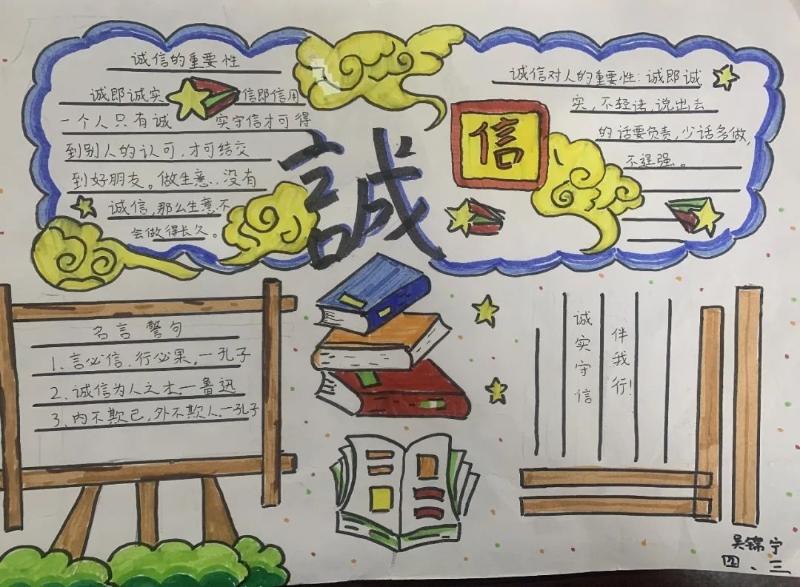 诚信的重要性
诚即诚实 信即信用
一个人只有诚 实守信才可得
到别人的认可,才可结交
到好朋友。做生意..没有
诚信,那么生意不
会做得长久。
誠
信
诚信对人的重要性:诚即诚
实,不轻诺,说出去
的话要负责,少话多做,
不逞强。
名言警句
1、言必信、行必果。一孔子
2、诚信为人之本一鲁迅
3、内不欺己,外不欺人。一孔子
诚实守信
伴我行!
吴锦宁
四、三